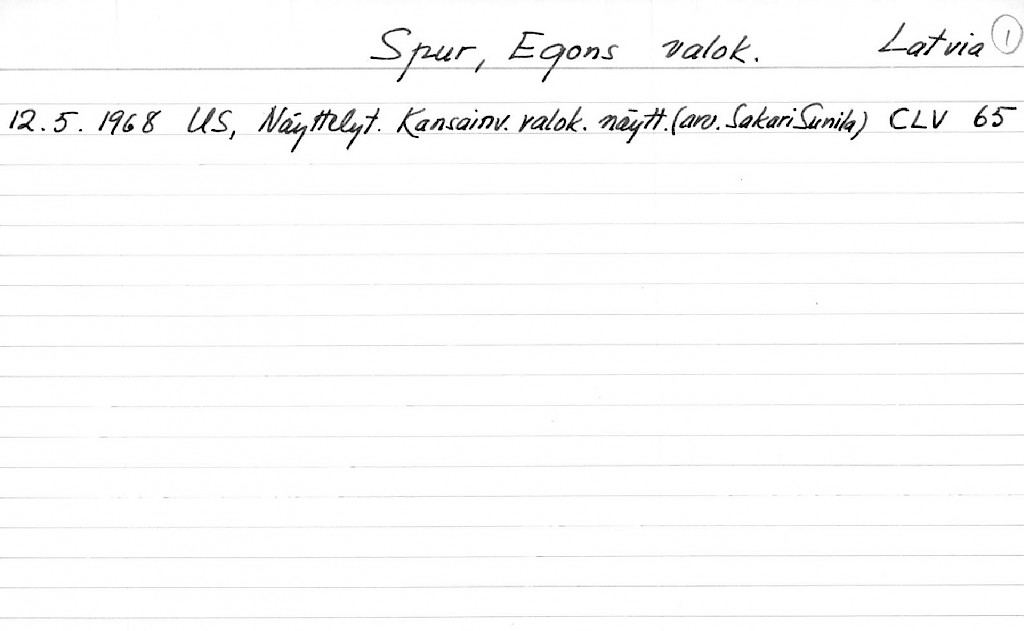 Spur, Egons valok. Latvia 1
12.5. 1968 US, Näyttelyt. Kansainv. valok. näytt. (arv. Sakari Sunila) CLV 65